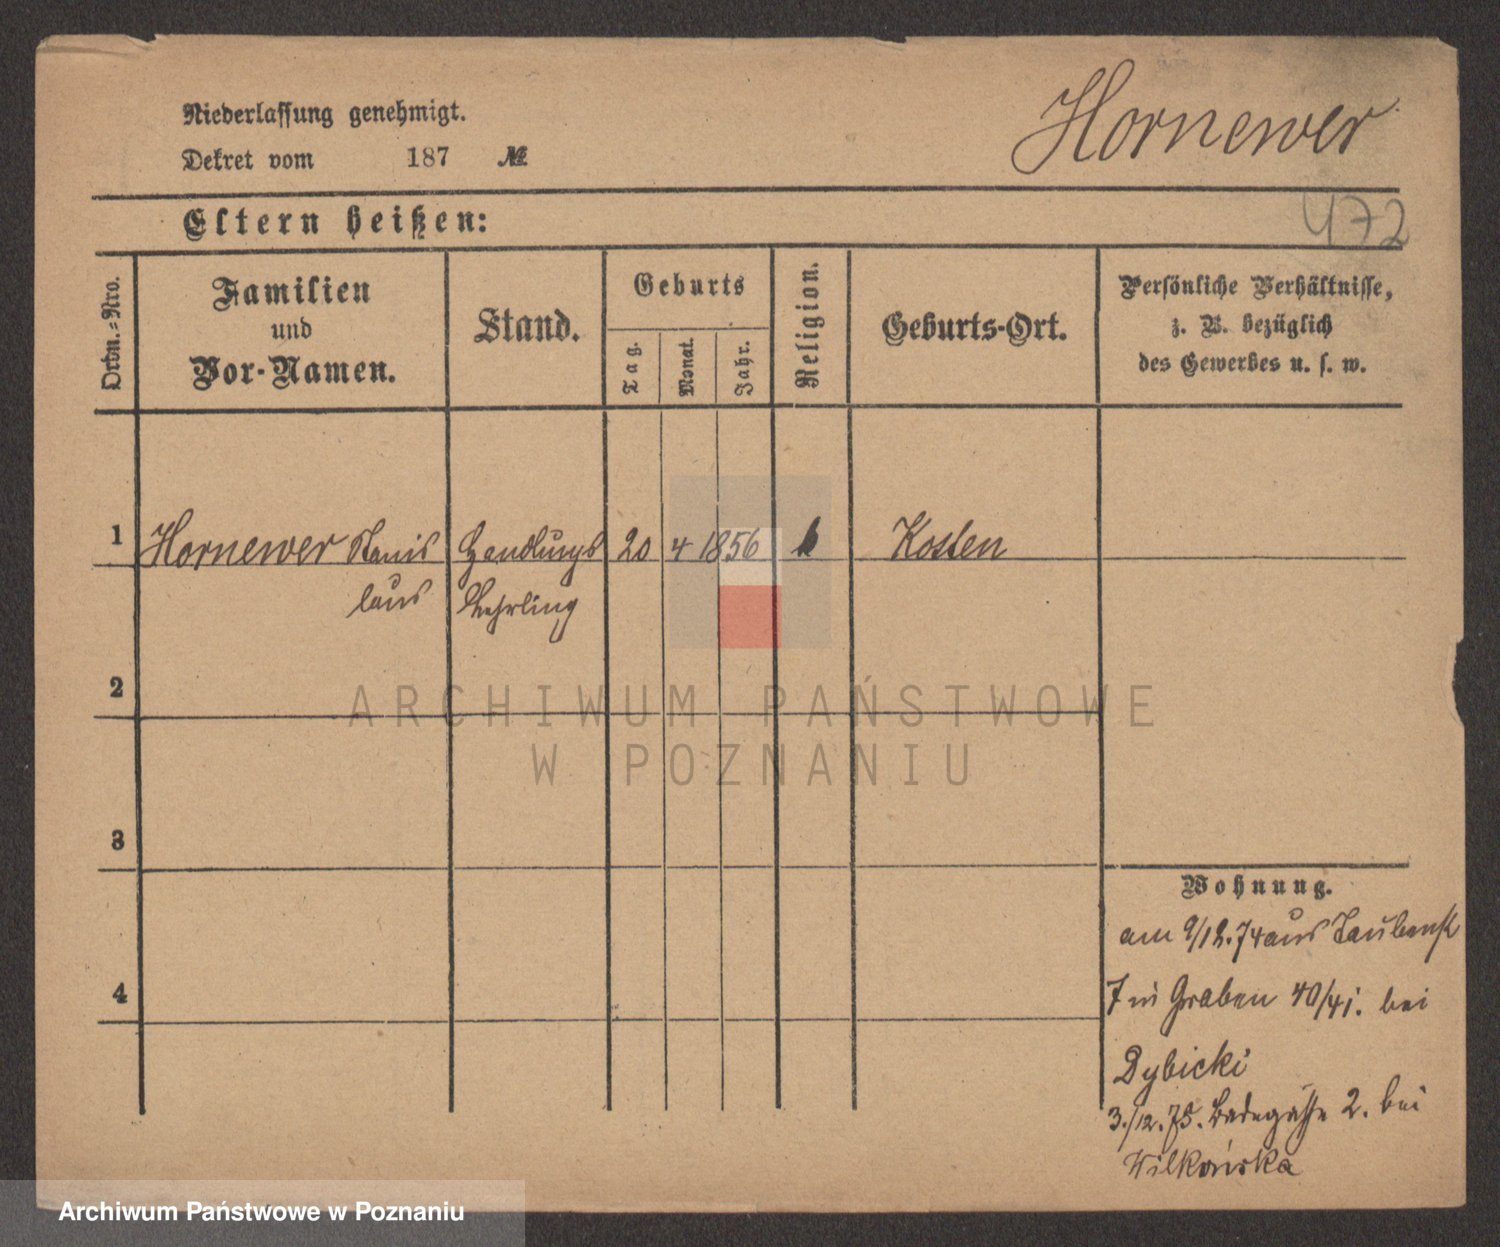 Niederlassung genehmigt.
Dekret vom 187 №
Hornewer
472
Eltern heißen:
Ordn.=Nro.
Familien
und
Vor-Namen.
Stand.
Geburts
Tag.
Monat.
Jahr.
Religion.
Geburts-Ort.
Persönliche Verhältnisse,
z. B. bezüglich
des Gewerbes u. s. w.
1 Hornewer Stanis Handlungs 20 4 1856 Kosten
laus Lehrling
2
3
4
Wohnung.
am 9/12.74 aus Taubenst
7 in Graben 40/41. bei
Dybicki
3./12.75. Badegasse 2. bei
Wilkońska
ARCHIWUM PAŃSTWOWE
W POZNANIU
Archiwum Państwowe w Poznaniu